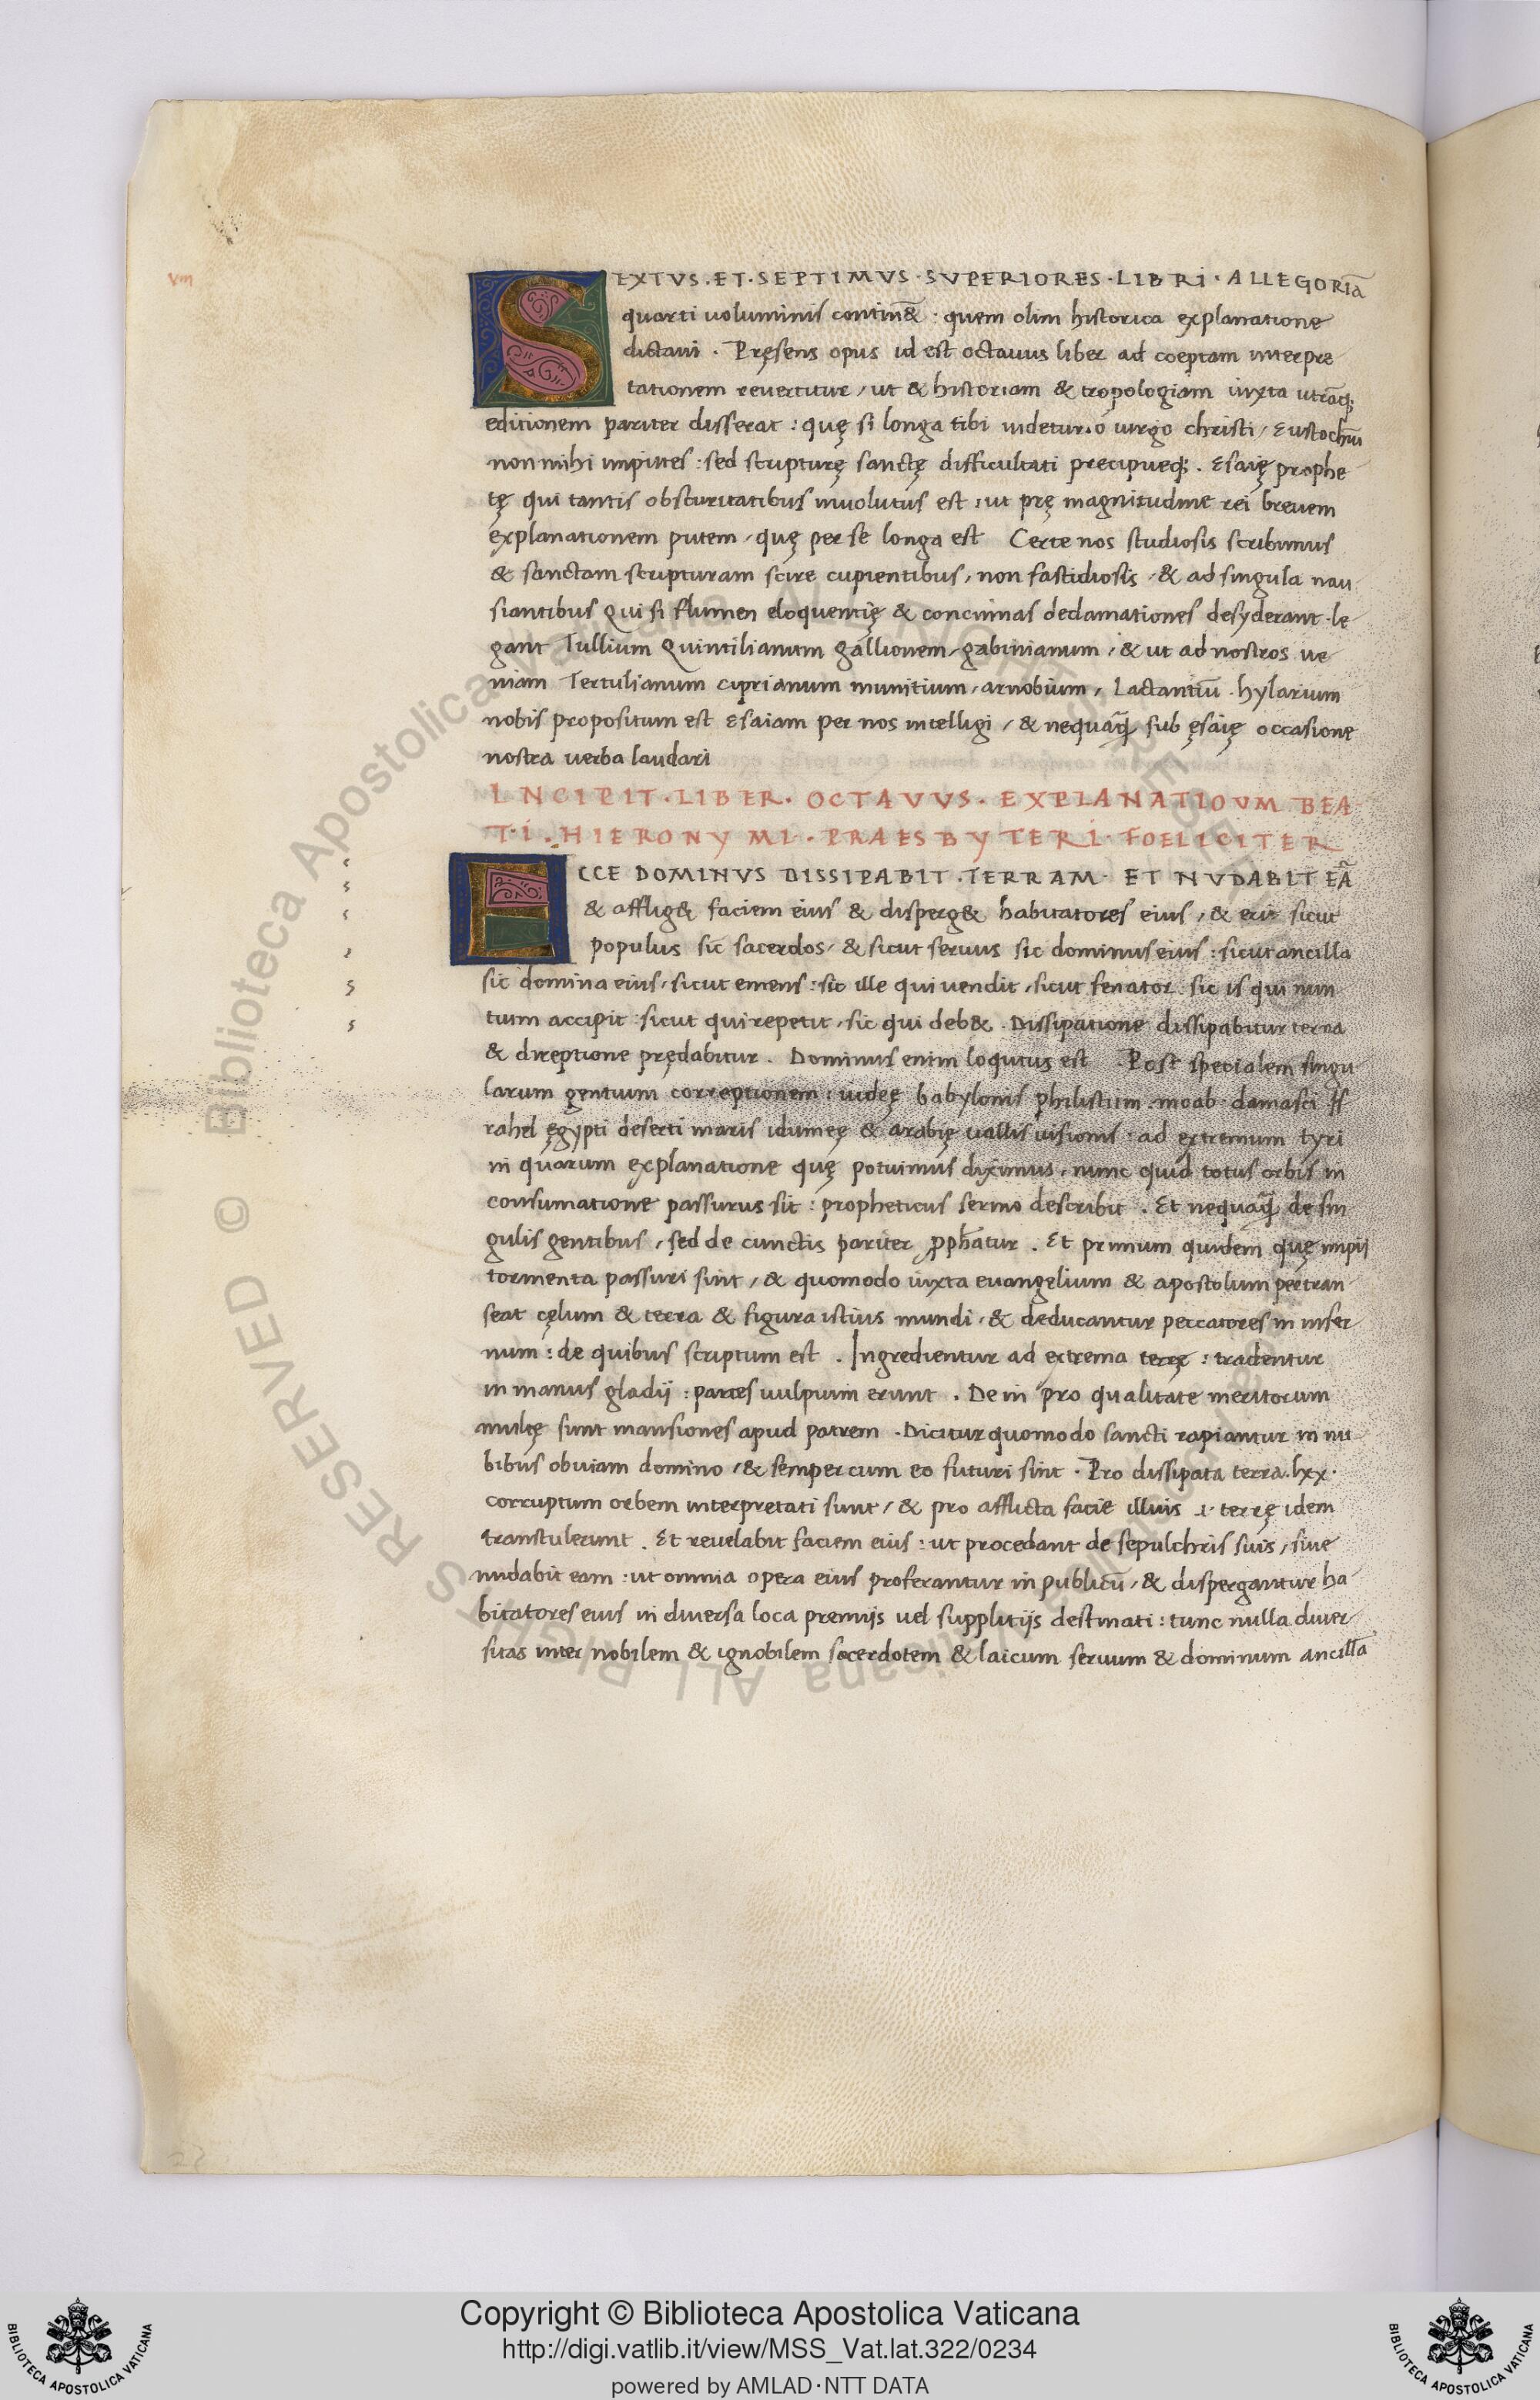 vııı
SEXTVS.ET.SEPTIMVS.SVPERIORES.LIBRI.ALLEGORIĀ
quarti uoluminis contin&̄ : quem olim historica explanatione
dictaui . Pręsens opus id est octauus liber ad coeptam interpre
tationem reuertitur / ut & historiam & tropologiam iuxta utrāq;
editionem pariter disserat : quę si longa tibi uidetur . o uirgo christi / Eustochiū
non mihi imputes : sed scripturę sanctę difficultati precipueq; . Esaię prophe
tę qui tantis obscuritatibus inuolutus est : ut prę magnitudine rei breuem
explanationem putem / quę per se longa est Certe nos studiosis scribimus
& sanctam scripturam scire cupientibus / non fastidiosis / & ad singula nau
siantibus Qui si flumen eloquentię & concinnas declamationes desyderant . le
gant Tullium Quintilianum gallionem / gabinianum / & ut ad nostros ue
niam Tertulianum ciprianum munitium / arnobium / Lactantiū . hylarium
nobis propositum est Esaiam per nos intelligi / & nequaq̄ sub ęsaię occasione
nostra uerba laudari
INCIPIT.LIBER.OCTAVVS.EXPLANATIOVM.BEA
TI.HIERONYMI.PRAESBYTERI.FOELICITER
ECCE DOMINVS DISSIPABIT.TERRAM.ET NVDABIT EĀ
& afflig& faciem eius & disperg& habitatores eius / & erit sicut
populus sic sacerdos / & sicut seruus sic dominus eius : sicut ancilla
sic domina eius / sicut emens : sic ille qui uendit / sicut fenator . sic is qui mu
tuum accipit : sicut qui repetit / sic qui deb& . Dissipatione dissipabitur terra
& direptione prędabitur . Dominus enim loqutus est Post specialem singu
larum gentium correptionem : iudeę babylonis philistiim moab damasci Is
rahel ęgypti deserti maris idumeę & arabię uallis uisionis : ad extremum tyri
in quarum explanatione quę potuimus diximus / nunc quid totus orbis in
consumatione passurus sit : propheticus sermo describit . Et nequaq̄ de sin
gulis gentibus / sed de cunctis pariter ꝓph̄atur . Et primum quidem quę impij
tormenta passuri sint / & quomodo iuxta euangelium & apostolum pertran
seat cęlum & terra & figura istius mundi / & deducantur peccatores in infer
num : de quibus scriptum est . Ingredientur ad extrema terrę : tradentur
in manus gladij : partes uulpium erunt . De in pro qualitate meritorum
multę sunt mansiones apud patrem . Dicitur quomodo sancti rapiantur in nu
bibus obuiam domino / & semper cum eo futuri sint . Pro dissipata terra . lxx .
corruptum orbem interpretati sunt / & pro afflicta facie illius .i. terrę idem
transtulerunt . Et reuelabit faciem eius : ut procedant de sepulchris suis / siue
nudabit eam : ut omnia opera eius proferantur in publicū / & dispergantur ha
bitatores eius in diuersa loca premijs uel supplitijs destinati : tunc nulla diuer
sitas inter nobilem & ignobilem sacerdotem & laicum seruum & dominum ancillā
Biblioteca Apostolica Vaticana ALL RIGHTS RESERVED ©
Copyright © Biblioteca Apostolica Vaticana
http://digi.vatlib.it/view/MSS_Vat.lat.322/0234
powered by AMLAD·NTT DATA
BIBLIOTECA APOSTOLICA VATICANA
BIBLIOTECA APOSTOLICA VATICANA